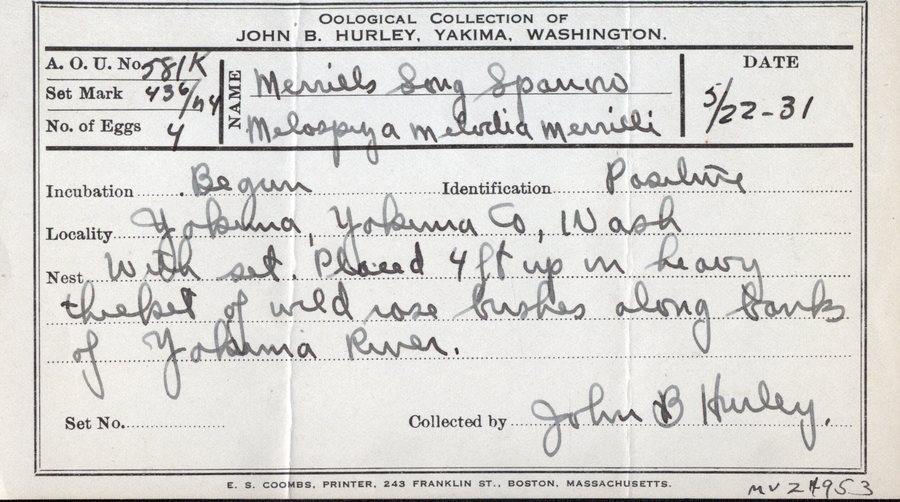 OOLOGICAL COLLECTION OF
JOHN B. HURLEY, YAKIMA, WASHINGTON.
A. O. U. No. 581K
Set Mark 436/44
No. of Eggs 4
NAME
Merrills Song Sparrow
Melospiza melodia merrilli
DATE
5/22-31
Incubation Begun Identification Positive
Locality Yakima, Yakima Co, Wash
Nest With set. Placed 4 ft up in heavy
thicket of wild rose bushes along banks
of Yakima River.
Set No. Collected by John B Hurley.
E. S. COOMBS, PRINTER, 243 FRANKLIN ST., BOSTON, MASSACHUSETTS.